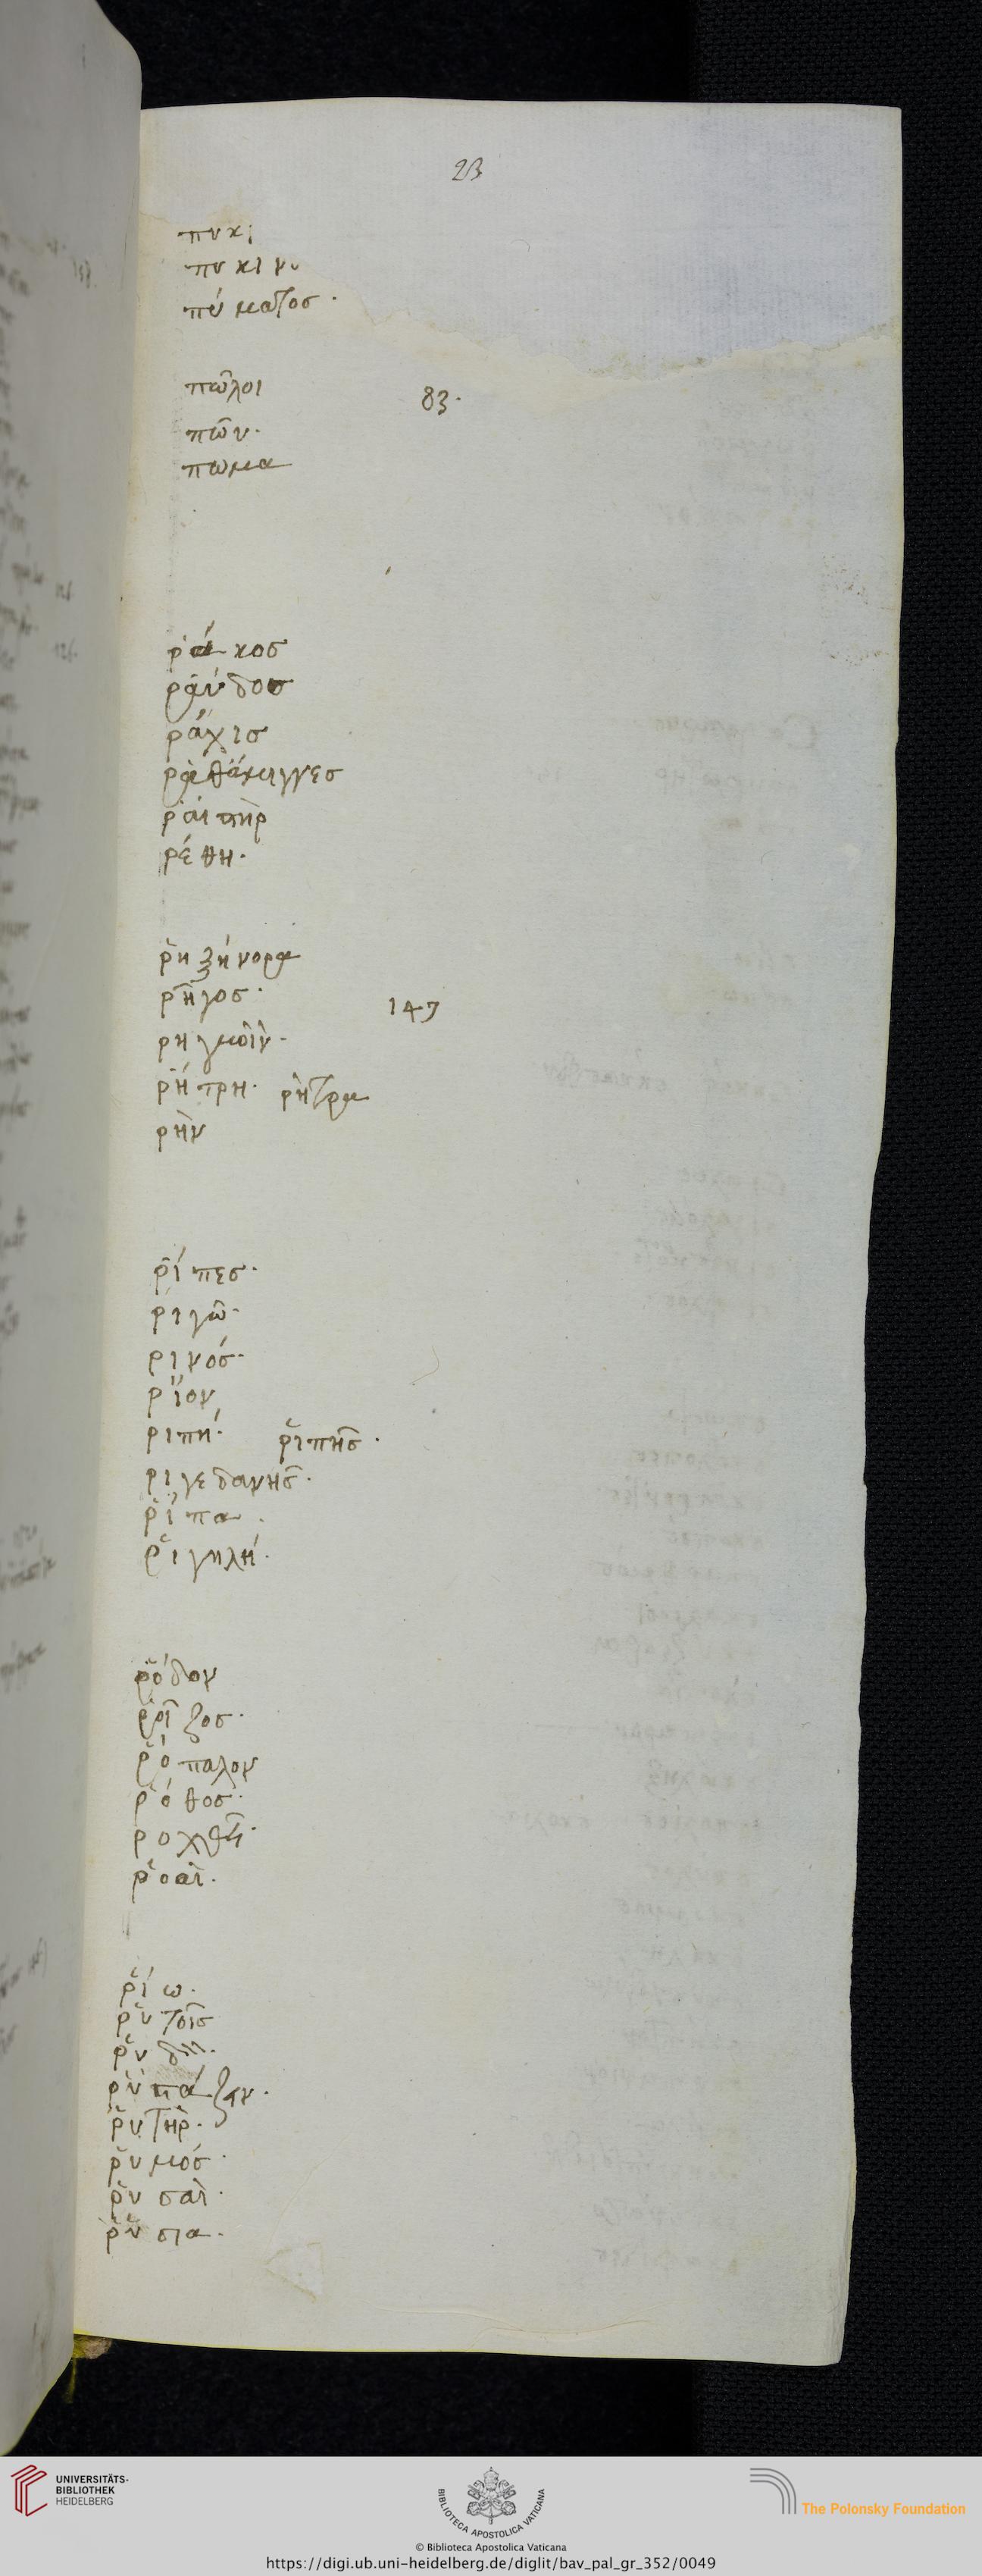 23
πυκι
πυκινυ
πύματος ·
πῶλοι 83 ·
πῶν ·
πωμα
ῥάκος
ῥάβδος
ῥάχις
ῥαθάμιγγες
ῥαιστὴρ
ῥέθη ·
ῥηξήνορα
ῥῆγος · 147
ῥηγμὶν ·
ῥήτρη · ῥήτρα
ῥὴν
ῥίπες ·
ῥιγῶ ·
ρινός ·
ρἴον
ριπή · ῥιπῆς ·
ριγεδανῆς ·
ῥίπα ·
ῥιγηλή ·
ῥόδον
ῥόπαλον
ῥόθος ·
ροχθεῖ ·
ῥοαὶ ·
ῥίω ·
ῥυτοῖς
ῥυπάζην ·
ῥυτὴρ ·
ῥυμός ·
ῥυσαὶ ·
ῥύσια ·
UNIVERSITÄTS-
BIBLIOTHEK
HEIDELBERG
BIBLIOTECA APOSTOLICA VATICANA
The Polonsky Foundation
© Biblioteca Apostolica Vaticana
https://digi.ub.uni-heidelberg.de/diglit/bav_pal_gr_352/0049